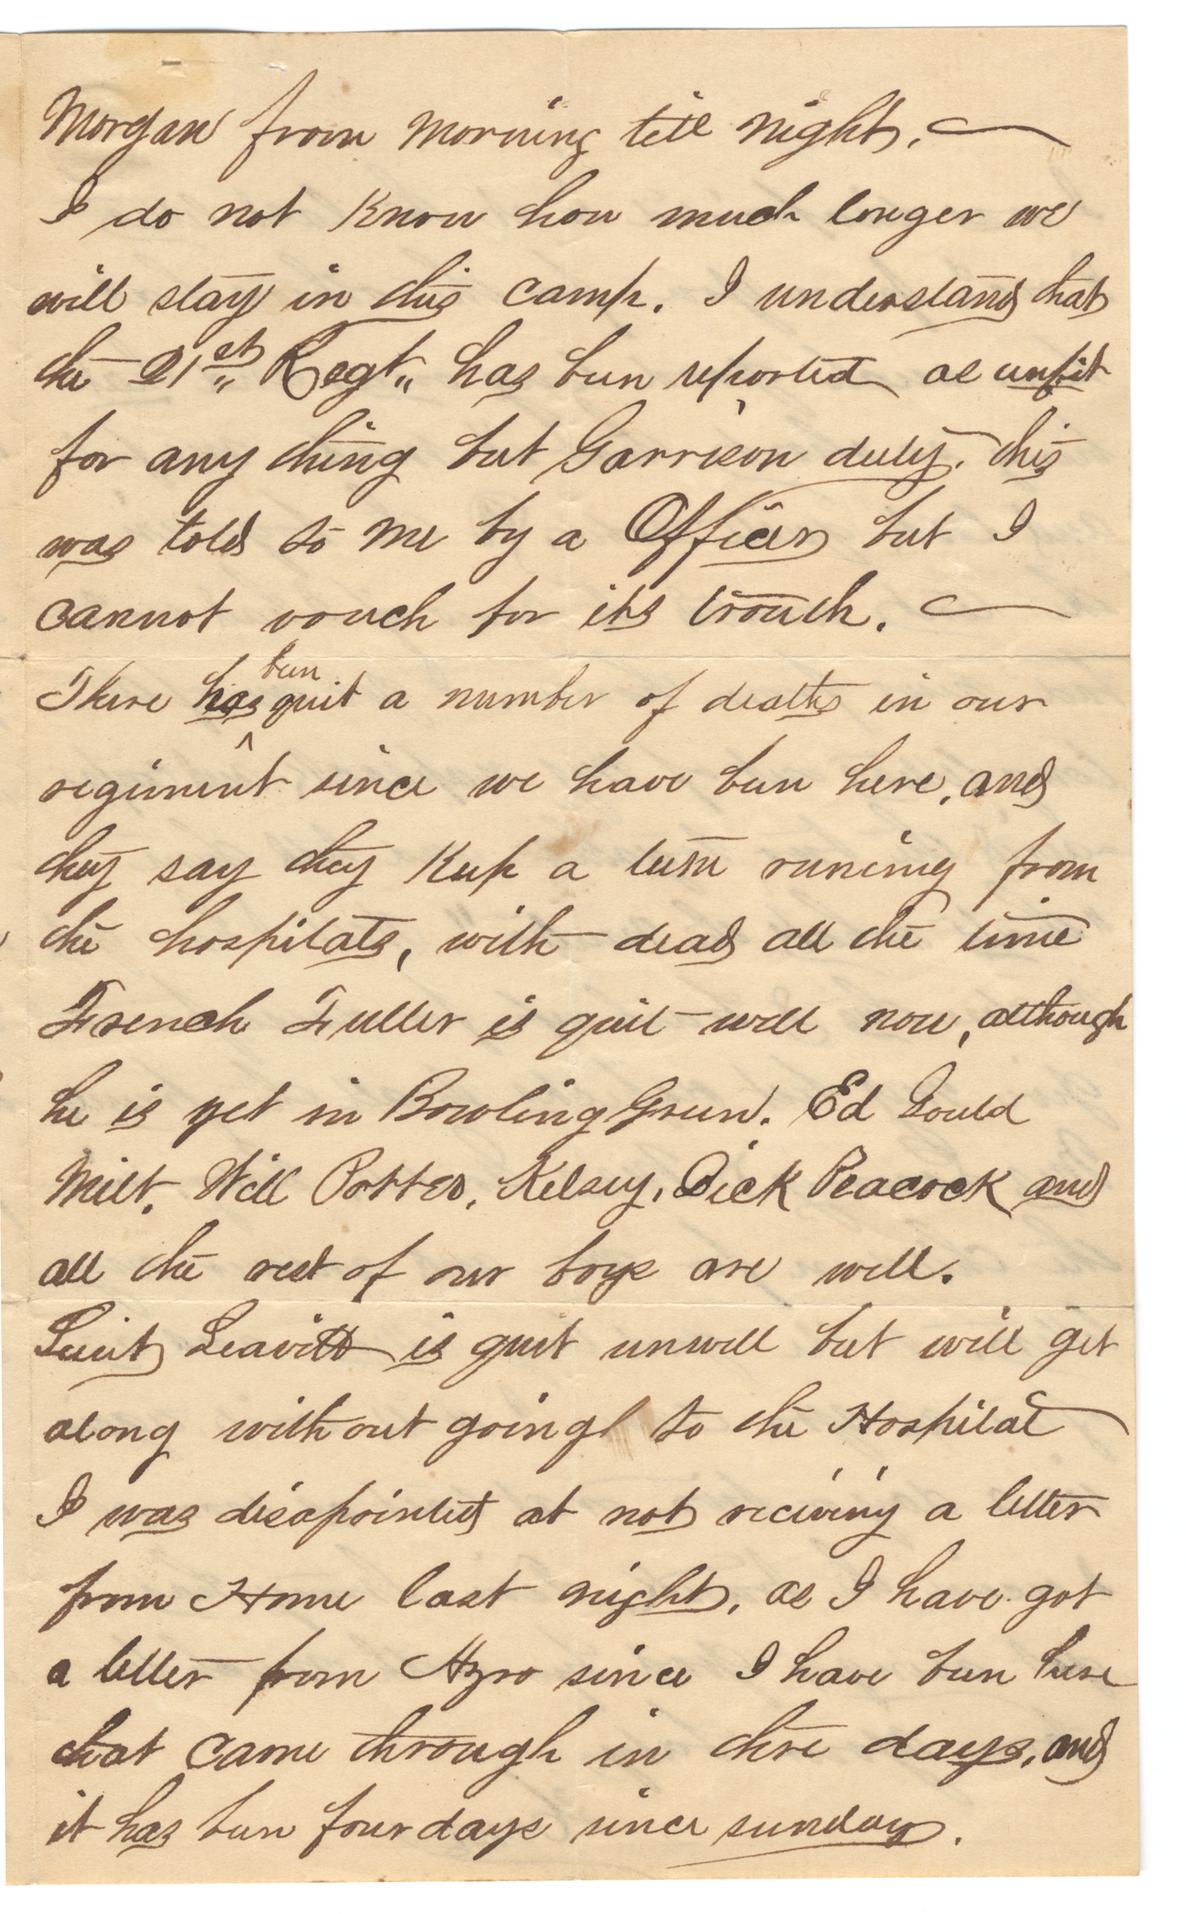 Morgan from morning till night.
I do not know how much longer we
will stay in this camp. I understand that
the 21st Regt. has been reported as unfit
for any thing but Garrison duty. this
was told to me by a Officer but I
cannot vouch for its trouth.
There has been quit a number of deaths in our
regiment since we have been here, and
they say they keep a team runing from
the hospitals, with dead all the time
French Fuller is quit well now, although
he is yet in Bowling Green. Ed Gould
Milt. Will Potter, Kelsey, Dick Peacock and
all the rest of our boys are well.
Lieut Leavitt is quit unwell but will get
along without going to the Hospital
I was disapointed at not reciving a letter
from Home last night, as I have got
a letter from Azro since I have been here
that came through in thre days, and
it has been four days since sunday.